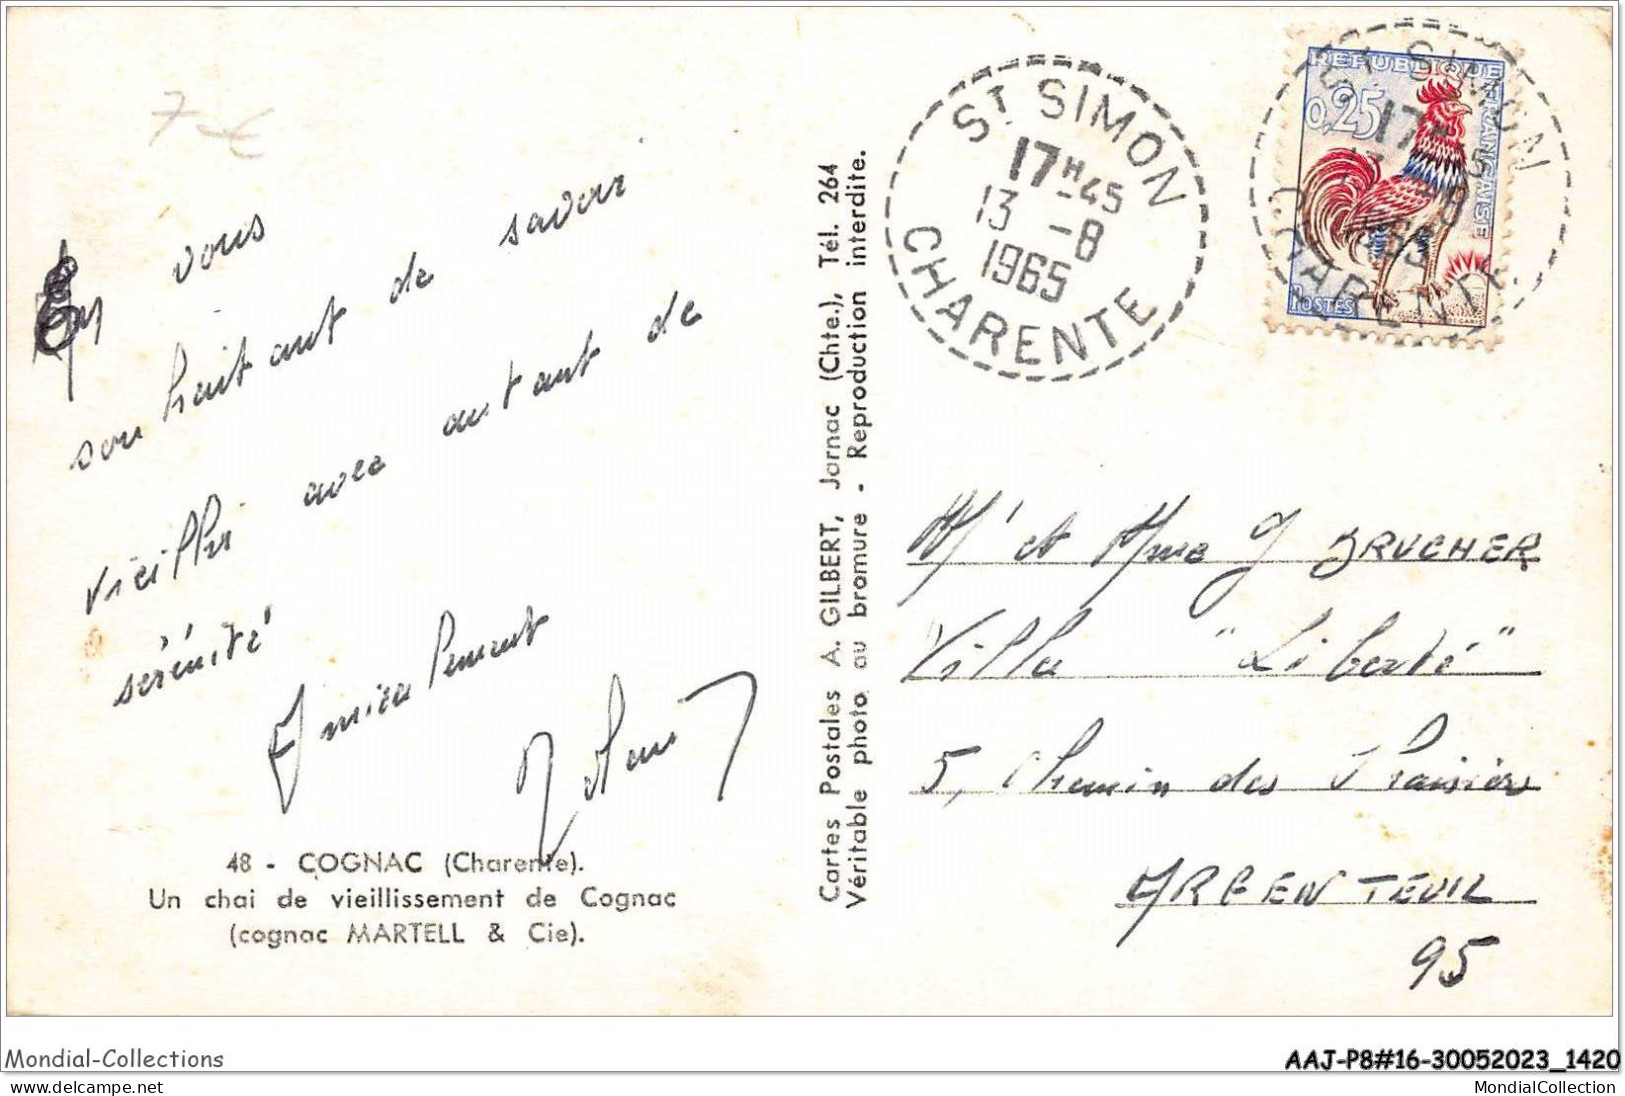 7 - €
En vous
souhaitant de savoir
vieillir avec autant de
sérénité
Amicalement
48 - COGNAC (Charente).
Un chai de vieillissement de Cognac
(cognac MARTELL & Cie).
Cartes Postales A. GILBERT, Jarnac (Chte.), Tél. 264
Véritable photo au bromure - Reproduction interdite.
ST SIMON
17H45
13 -8
1965
CHARENTE
REPUBLIQUE FRANÇAISE
0,25
POSTES
ST SIMON
17H45
13 -8
1965
CHARENTE
Mr et Mme J BRUCHER
Villa "Liberté"
5, Chemin des
ARGENTEUIL
95
Mondial-Collections
AAJ-P8#16-30052023_1420
www.delcampe.net
MondialCollection